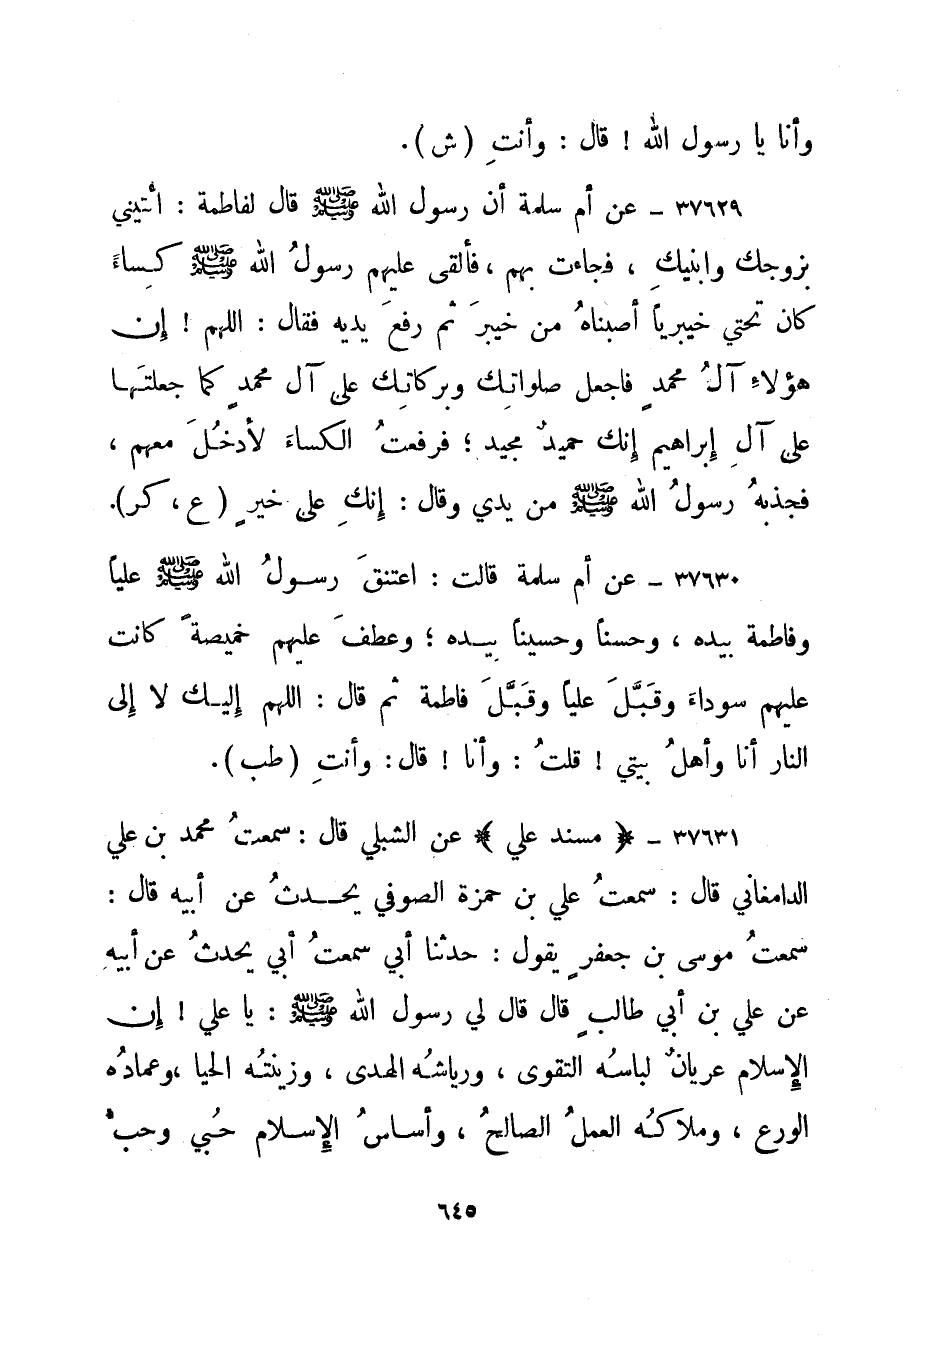 وأنا يا رسول الله ! قال : وأنتِ (ش).
٣٧٦٢٩ ـ عن أم سلمة أن رسول الله ﷺ قال لفاطمة : ائتيني
بزوجك وابنيكِ ، فجاءت بهم ، فألقى عليهم رسولُ الله ﷺ كساءً
كان تحتي خيبرياً أصبناهُ من خيبرَ ثم رفعَ يديه فقال : اللهم ! إن
هؤلاءِ آلُ محمدٍ فاجعل صلواتِك وبركاتِك على آل محمدٍ كما جعلتَها
على آلِ إبراهيم إنك حميدٌ مجيد ؛ فرفعتُ الكساءَ لأدخُلَ معهم ،
فجذبهُ رسولُ الله ﷺ من يدي وقال : إنكِ على خيرٍ (ع ، كر).
٣٧٦٣٠ ـ عن أم سلمة قالت : اعتنقَ رسولُ الله ﷺ علياً
وفاطمة بيده ، وحسناً وحسيناً بيده ؛ وعطفَ عليهم خميصةً كانت
عليهم سوداءَ وقَبَّلَ علياً وقَبَّلَ فاطمة ثم قال : اللهم إليك لا إلى
النار أنا وأهلُ بيتي ! قلتُ : وأنا ! قال : وأنتِ (طب).
٣٧٦٣١ ـ ﴿ مسند علي ﴾ عن الشبلي قال : سمعتُ محمد بن علي
الدامغاني قال : سمعتُ علي بن حمزة الصوفي يحدثُ عن أبيه قال :
سمعتُ موسى بن جعفرٍ يقول : حدثنا أبي سمعتُ أبي يحدثُ عن أبيهِ
عن علي بن أبي طالبٍ قال قال لي رسول الله ﷺ : يا علي ! إن
الإسلام عريانٌ لباسُه التقوى ، ورياشُه الهدى ، وزينتُه الحيا ، وعمادُه
الورع ، وملاكُه العملُ الصالحُ ، وأساسُ الإسلام حُبي وحبُ
٦٤٥